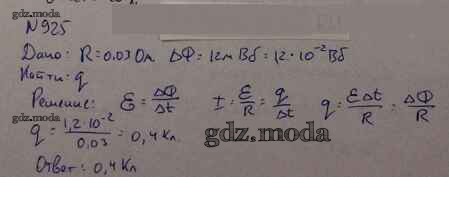 gdz.moda
N925
Дано: R=0.03 Ом ΔФ=12м Вб=12·10⁻² Вб
Найти: q
Решение: ℰ=ΔФ/Δt I=ℰ/R=q/Δt q=ℰΔt/R=ΔФ/R
gdz.moda
q=1,2·10⁻²/0,03=0,4 Кл.
gdz.moda
Ответ: 0,4 Кл